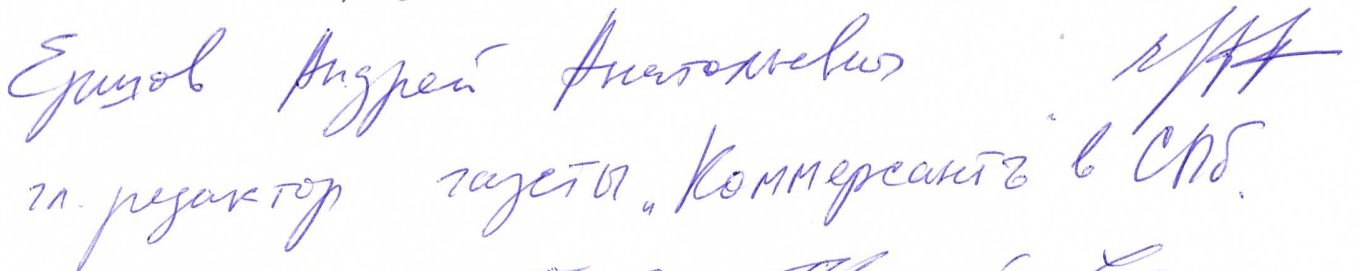 Ершов Андрей Анатольевич
гл. редактор газеты „Коммерсантъ" в СПб.